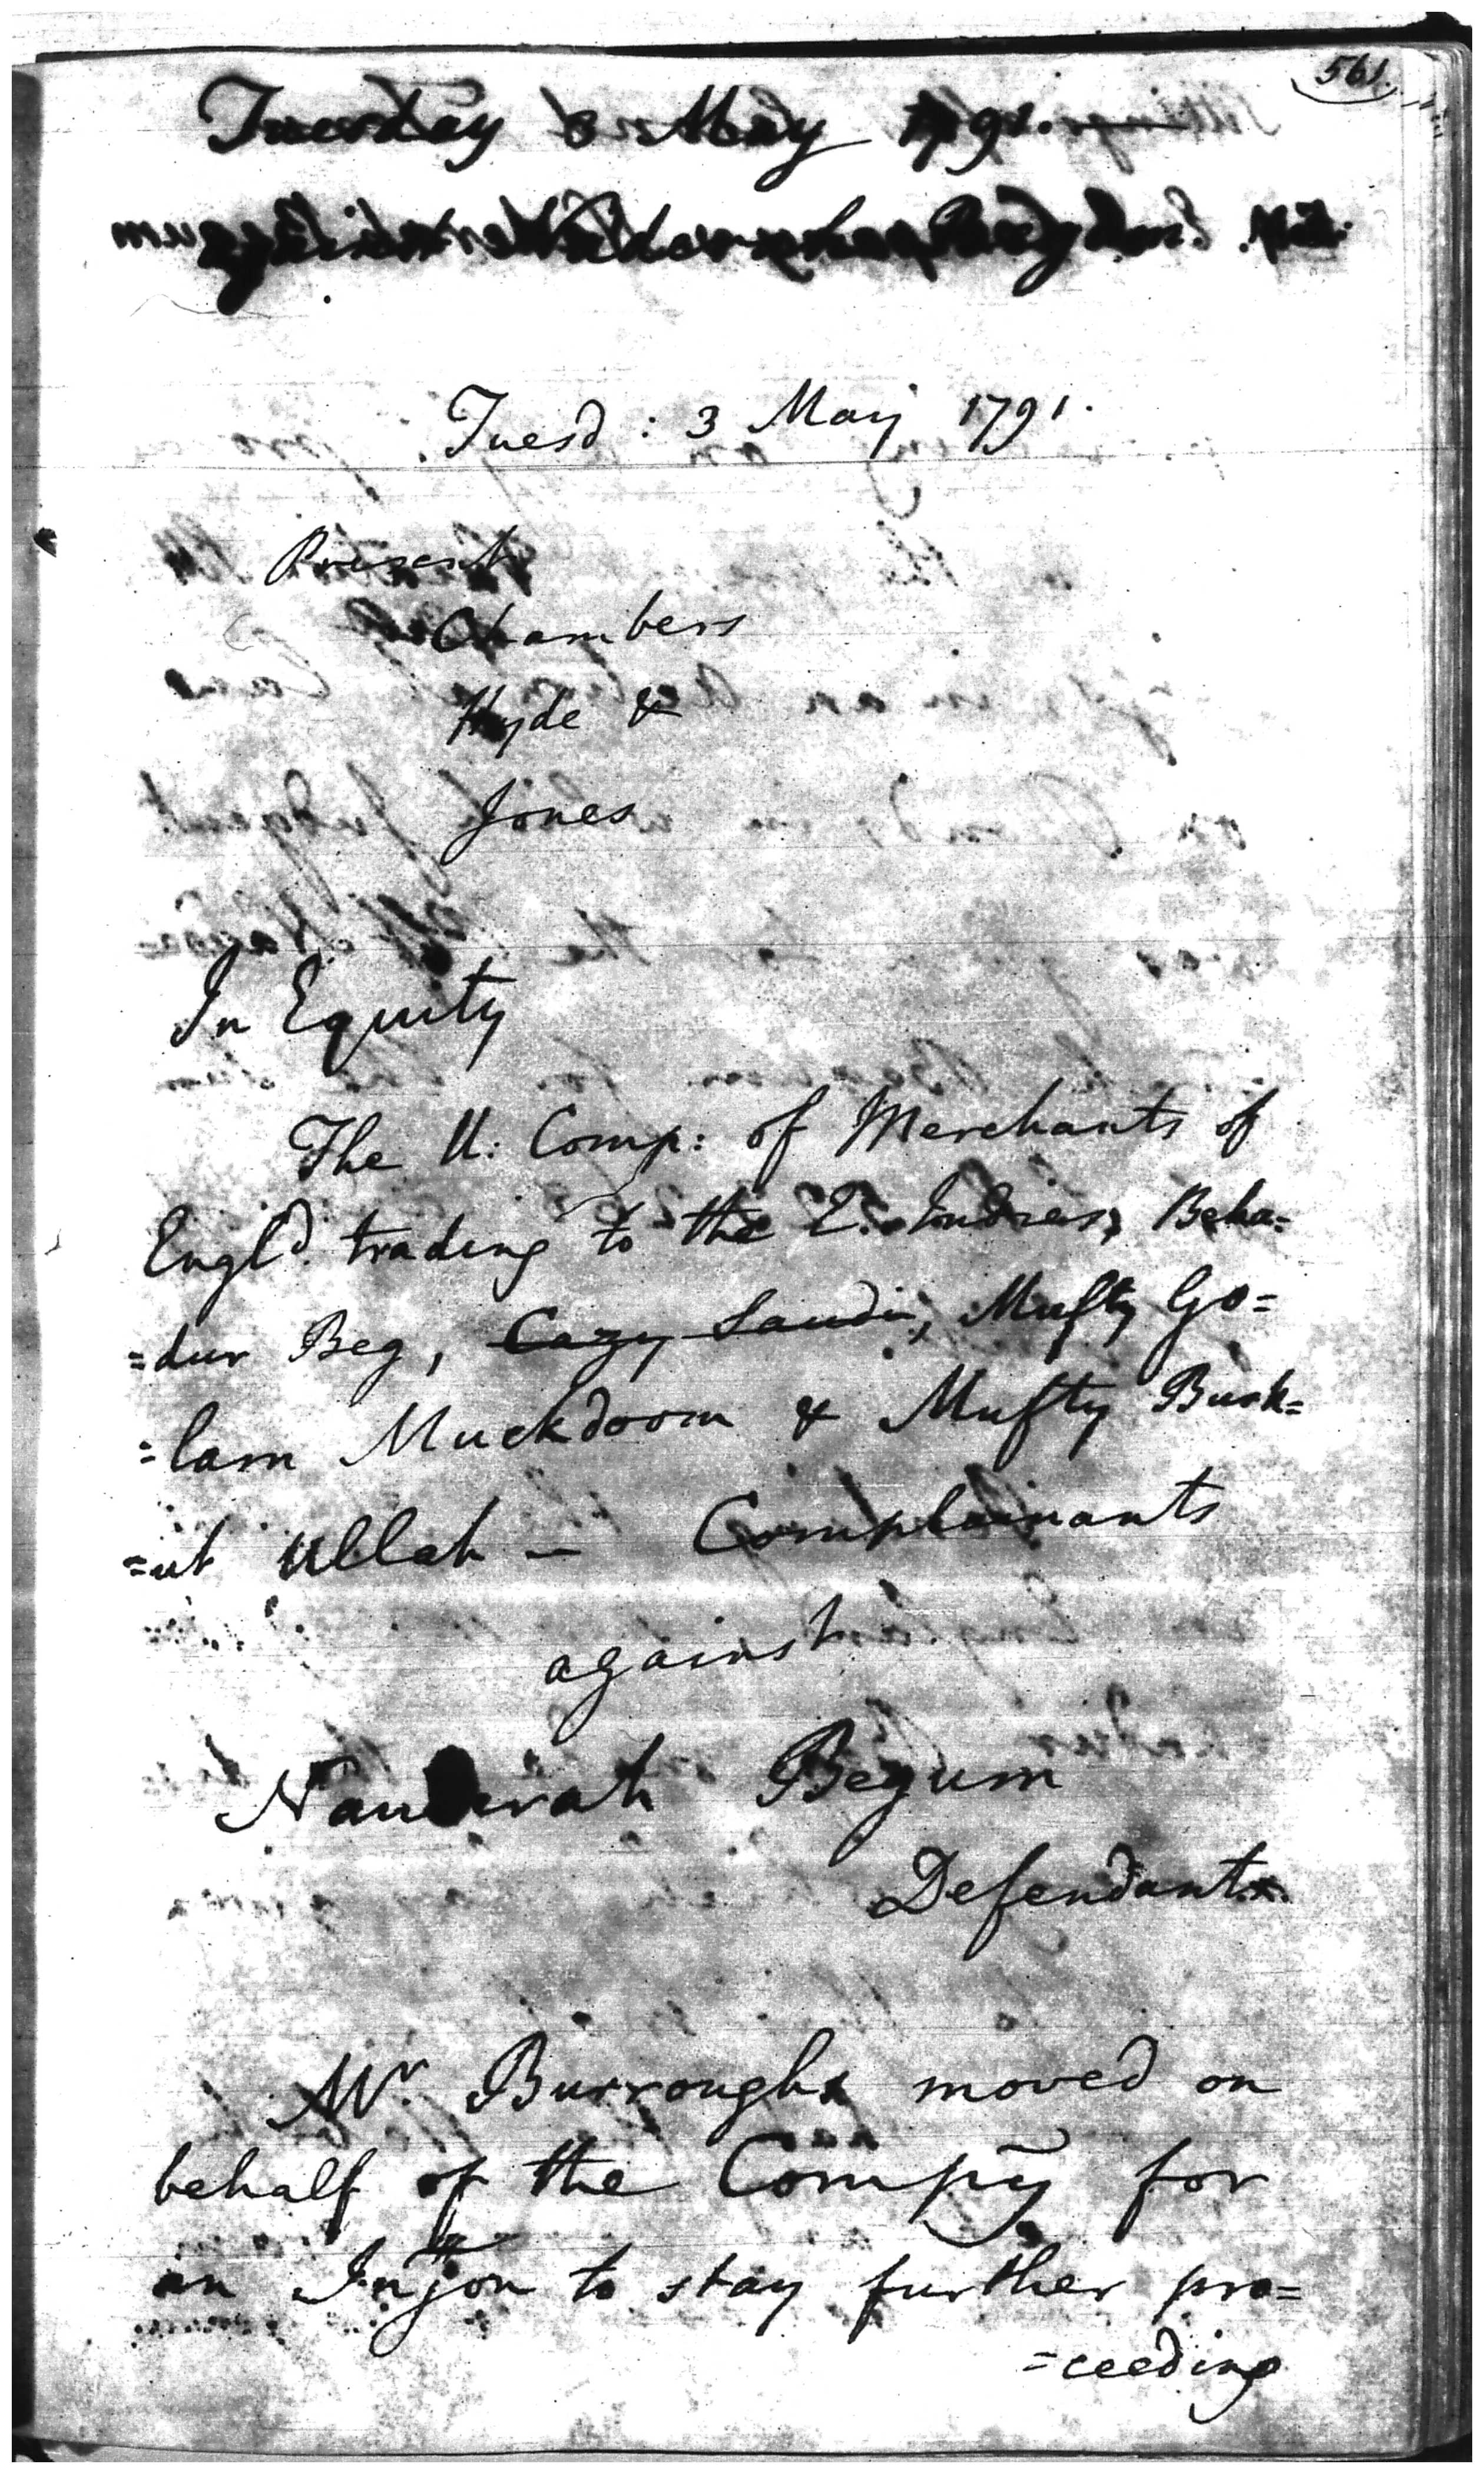 561.
Tuesday 3 May 1791.
Tuesd: 3 May 1791.
Present
Chambers
Hyde &
Jones
In Equity
The U: Comp: of Merchants of
Engld. trading to the E. Indies, Beha=
=dur Beg, Cazy Saudi, Mufty Go=
=lam Muckdoom & Mufty Burk=
=ut Ullah — Complainants
against
Begum
Defendant.
Mr. Burroughs moved on
behalf of the Compy for
an Injon to stay further pro=
=ceeding